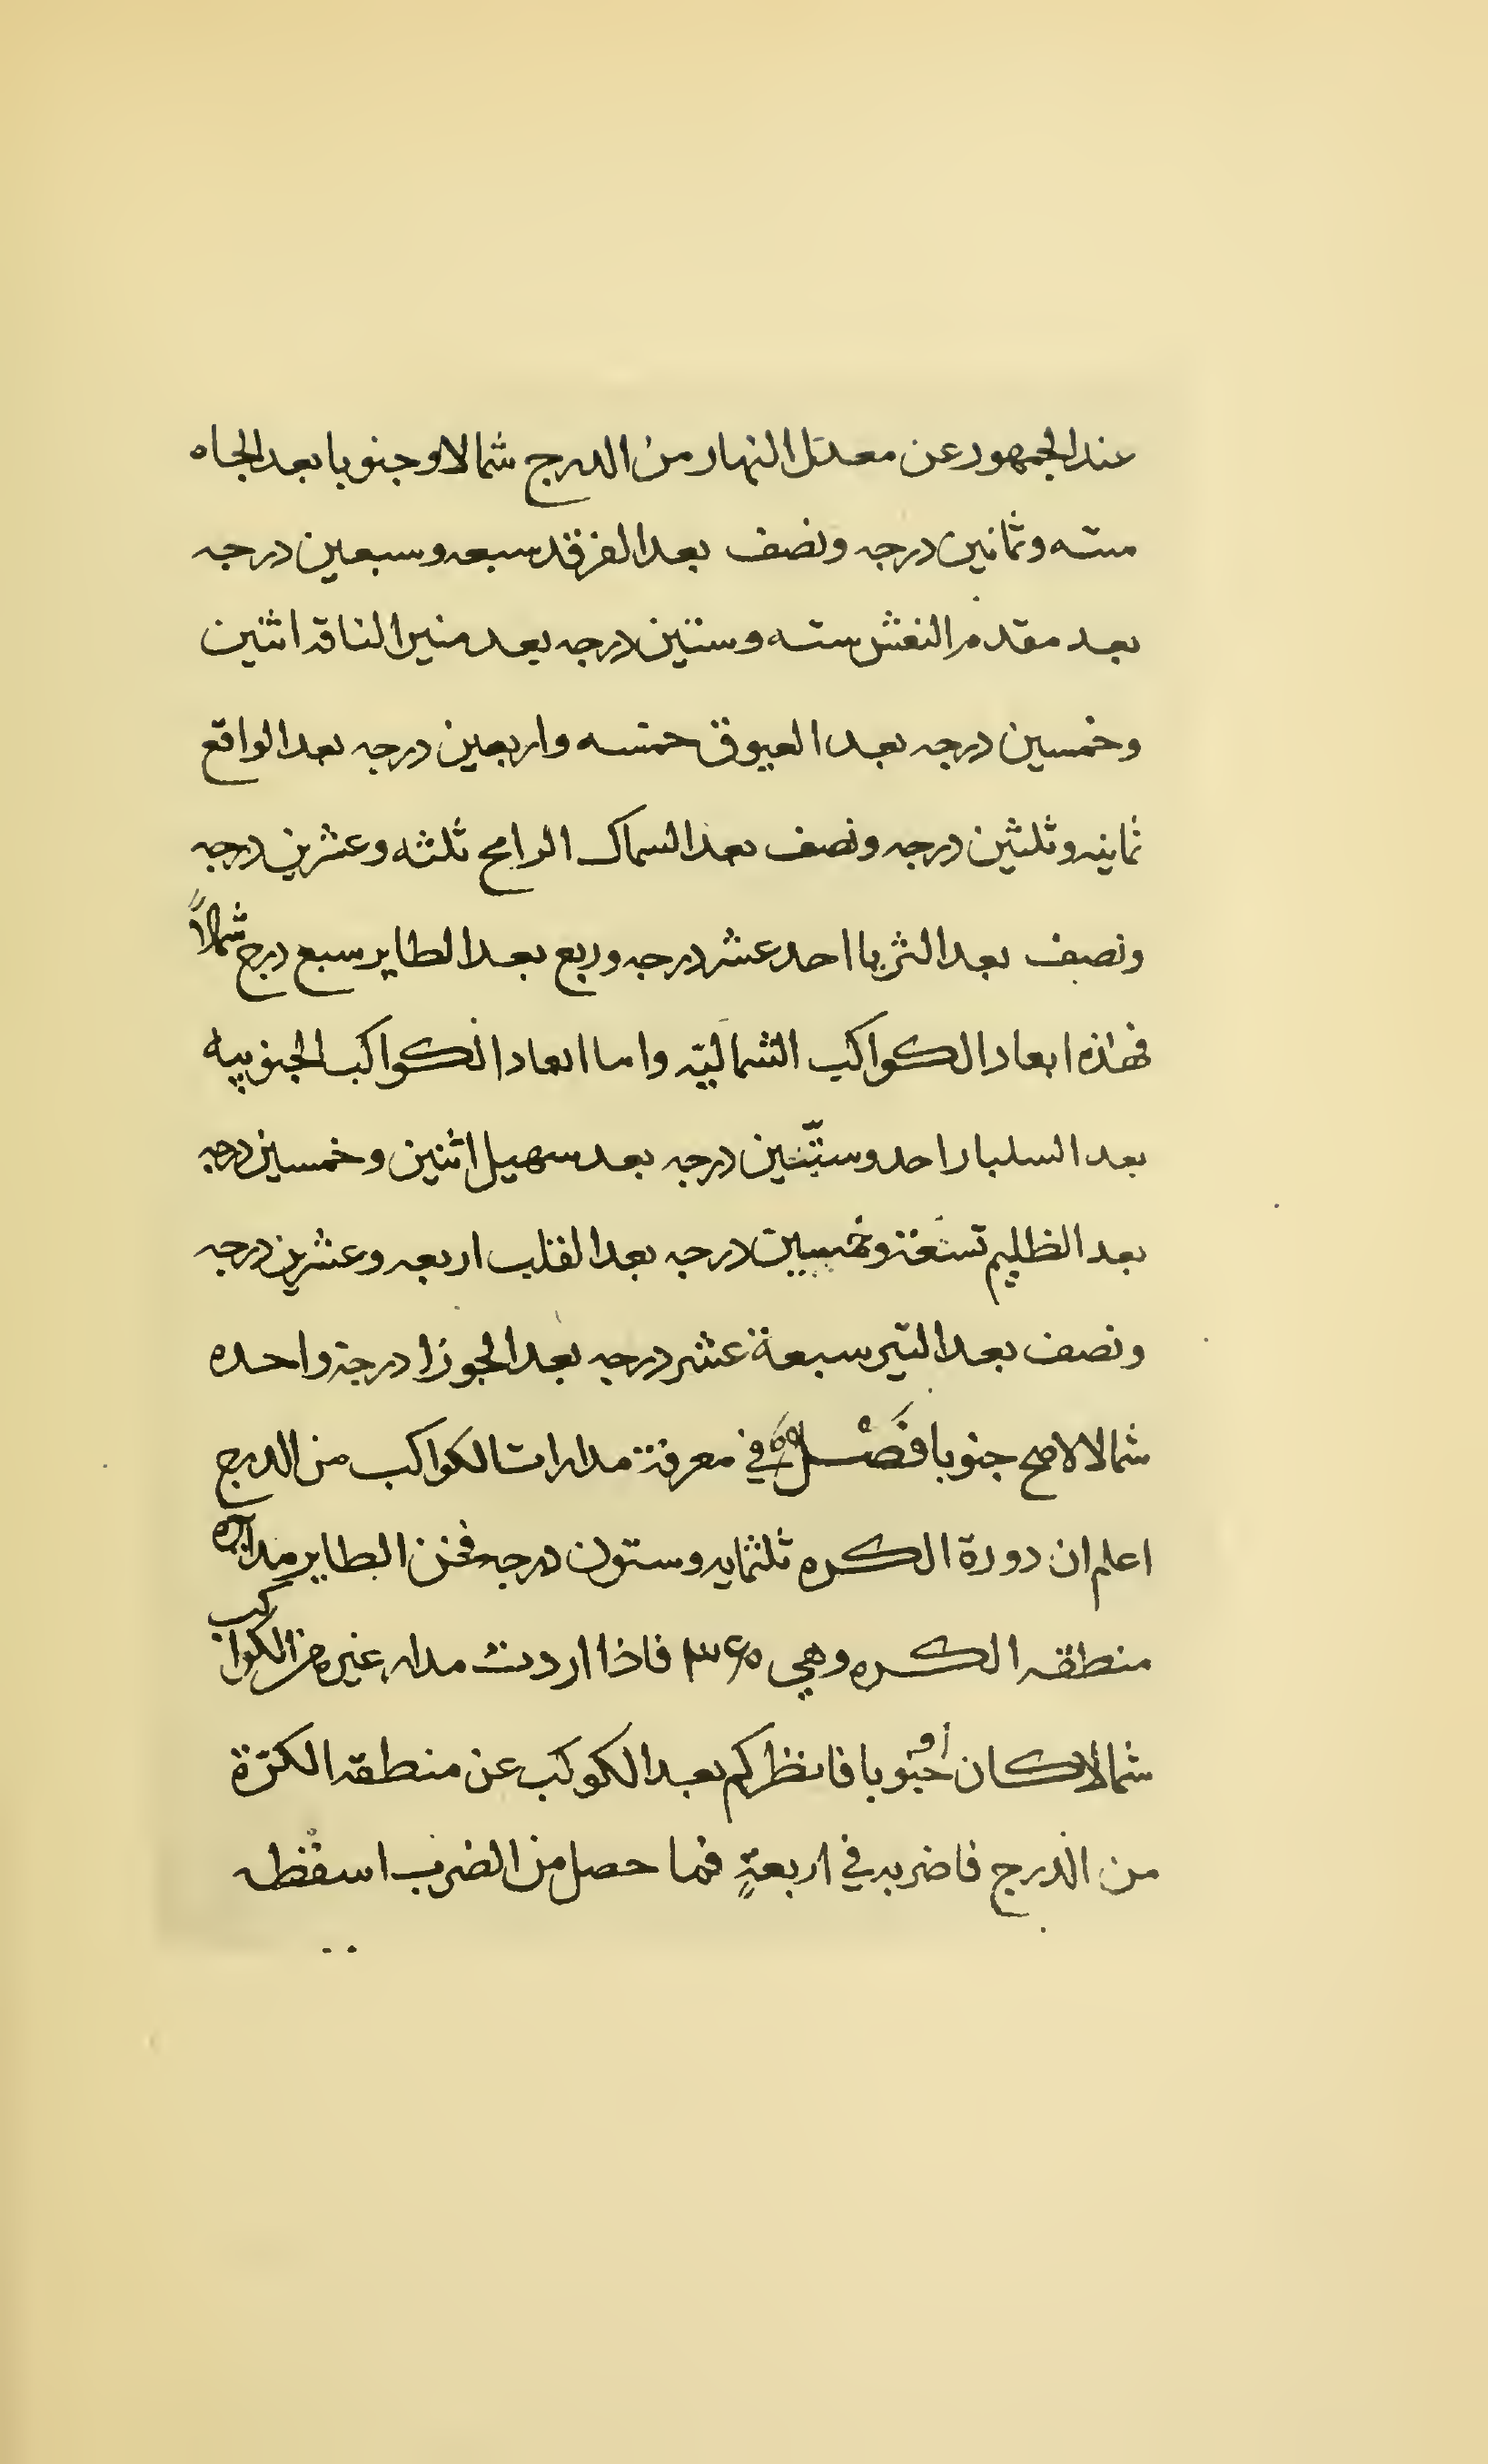 عند الجمهور عن معدل النهار من الدرج شمالا وجنوبا بعد الجاه
سته وثمانين درجه ونصف بعد الفرقد سبعه وسبعين درجه
بعد مقدم النعش سته وستين درجه بعد منير الناقه اثنين
وخمسين درجه بعد العيوق خمسه واربعين درجه بعد الواقع
ثمانيه وثلثين درجه ونصف بعد السماك الرامح ثلثه وعشرين درجه
ونصف بعد الثريا احد عشر درجه وربع بعد الطاير سبع درج شمالاً
فهاذه ابعاد الكواكب الشماليّه واما ابعاد الكواكب الجنوبيه
بعد السلبار احد وستّين درجه بعد سهيل اثنين وخمسين درجه
بعد الظليم تسعة وخمسين درجه بعد القلب اربعه وعشرين درجه
ونصف بعد التير سبعة عشر درجه بعد الجوزا درجة واحده
شمالا لاصح جنوبا فَصْل في معرفة مدارات الكواكب من الدرج
اعلم ان دورة الكره ثلثمايه وستون درجه فمن الطاير مداره
منطقه الكره وهي ٣٦٠ فاذا اردت مدار غيره من الكواكب
شمالا كان أو جنوبا فانظر كم بعد الكوكب عن منطقه الكرة
من الدرج فاضربه في اربعةٍ فما حصل من الضرب اسقطه